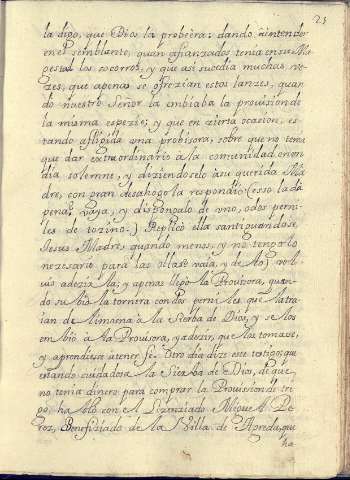 23
la digo, que Dios la probeerà: dando à entender
en el semblante, quan afianzados tenia en su Ma
gestad los socorros, y que asi sucedia muchas ve
zes, que apenas se ofrezian estos lanzes, quan
do nuestro Señor la embiaba la provision de
la misma espezie; y que en zierta ocasion, es
tando afligida una probisora, sobre que no tenia
que dar extraordinario à la comunidad en un
dia solemne, y diziendoselo à su querida Ma
dre, con gran desahogo la respondio: (esso la dà
pena? vaya, y dispongalo de uno, o dos perni
les de tozino.) Replicò ella santiguandose
Jesus Madre, quando menos, y no tengo lo
nezesario para las ollas? vaia, y de Ao) vol
viò à dezirla; y apenas llegò la Provisora, quan
do subio la tornera con dos perniles que la tra
ian de limosna à la Sierba de Dios, y se los
embiò à la Provisora, y à dezir, que los tomase,
y aprendiese à tener fè. Otro dia dize este testigo, que
estando cuidadosa la Sierba de Dios, de que
no tenia dinero para comprar la Provission de tri
go, hablò con el Lizenziado Miguel Pe
roz, Benefiziado de la Villa de Agreda, que
ha